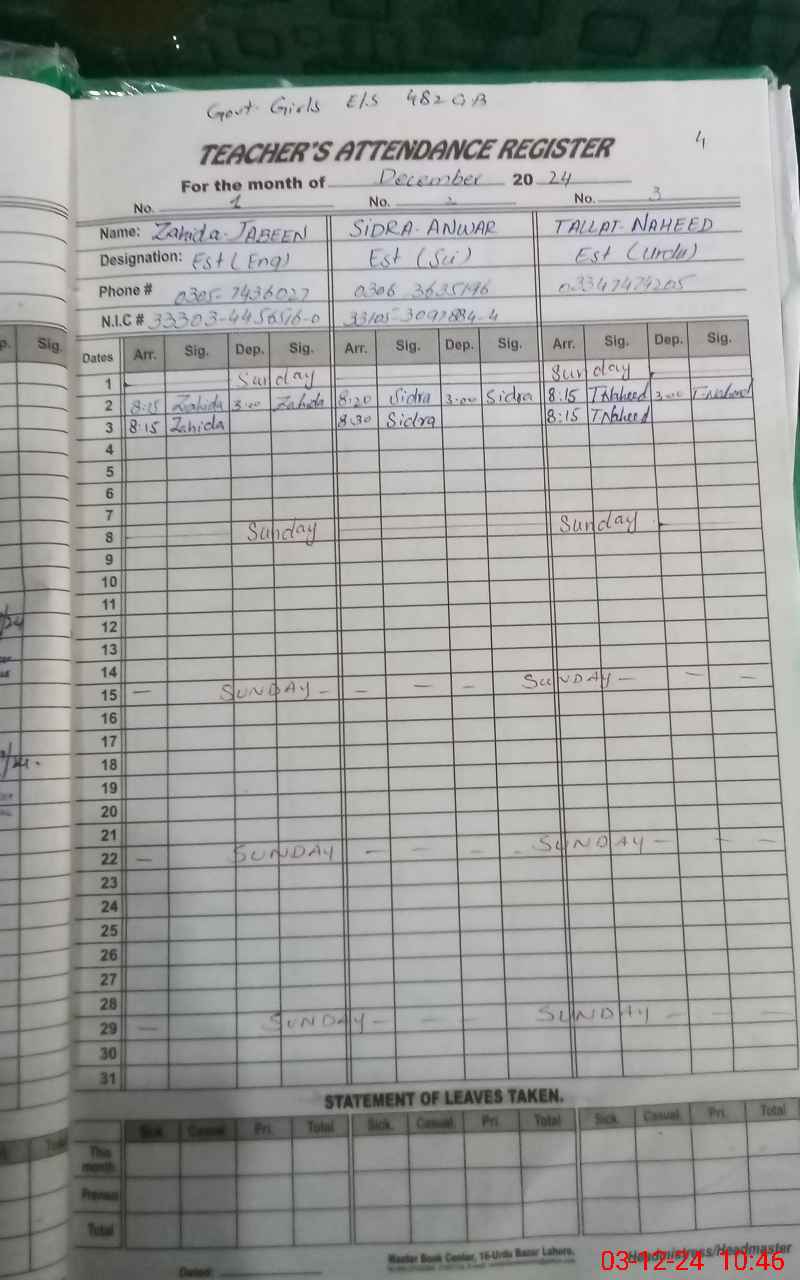 Govt. Girls E/S 482 GB
4
TEACHER'S ATTENDANCE REGISTER
For the month of December 20 24
No. 1 No. 2 No. 3
Name: Zahida JABEEN SIDRA ANWAR TALLAT NAHEED
Designation: Est (Eng) Est (Sci) Est (Urdu)
Phone # 0305-7436027 0306 3635196 03347474205
N.I.C # 33303-4456516-0 33105-3097884-4
Dates Arr. Sig. Dep. Sig. Arr. Sig. Dep. Sig. Arr. Sig. Dep. Sig.
p. Sig.
1 Sunday Sunday
2 8:15 Zahida 3:00 Zahida 8:20 Sidra 3:00 Sidra 8:15 TNaheed 3:00 T-Naheed
3 8:15 Zahida 8:30 Sidra 8:15 TNaheed
4
5
6
7
8 Sunday Sunday
9
10
11
12
13
14
15 — SUNDAY - - - - SUNDAY - - -
16
17
18
19
20
21
22 — SUNDAY - - - - SUNDAY - - -
23
24
25
26
27
28
29 — SUNDAY - - - SUNDAY - - -
30
31
STATEMENT OF LEAVES TAKEN.
Sick. Casual. Pri. Total Sick. Casual. Pri. Total Sick. Casual. Pri. Total
This month
Previous
Total
Dated:
Master Book Center, 16-Urdu Bazar Lahore.
Headmistress/Headmaster
03-12-24 10:46